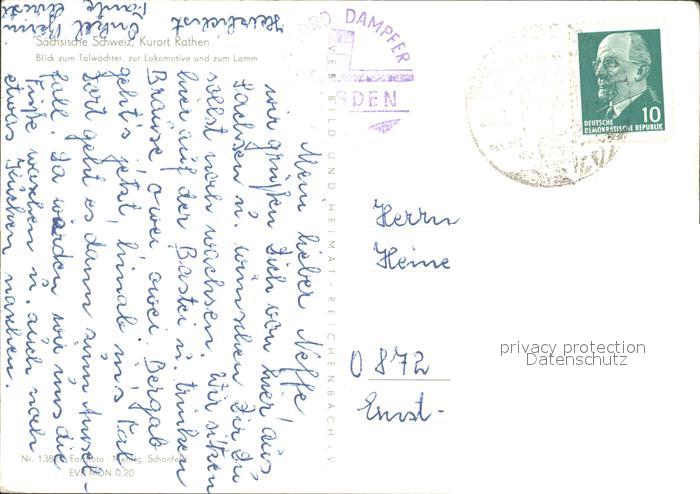 Sächsische Schweiz, Kurort Rathen
Blick zum Talwächter, zur Lokomotive und zum Lamm
Mein lieber Neffe!
wir grüßen Dich von hier aus
Sachsen u. wünschen Dir Du
sollst noch wachsen. Wir sitzen
hier auf der Bastei u. trinken
Brause owei owei. Bergab
geht's jetzt hinab in's Tal
dort geht es dann zum
Fall. Da werden wir uns die
Füße waschen u. auch noch
etwas Kuchen naschen.
Herzlichst
Onkel Heini
Tante
Nr. 138
EVP MDN 0.20
VEB BILD UND HEIMAT · REICHENBACH i. V.
BORD DAMPFER
SDEN
DEUTSCHE
DEMOKRATISCHE REPUBLIK
10
Herrn
Heine
0 872
Ernst-
privacy protection
Datenschutz